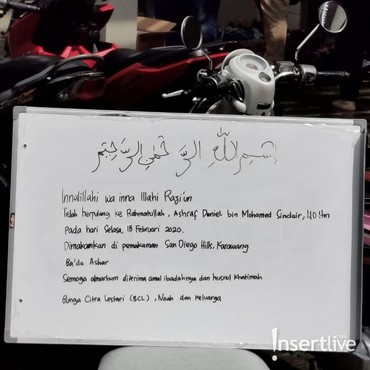 بسم الله الرحمن الرحيم
Innalillahi wa inna Illahi Raji'un
Telah berpulang ke Rahmatullah, Ashraf Daniel bin Mohamed Sinclair, 40 thn
Pada hari Selasa, 18 Februari 2020.
Dimakamkan di pemakaman San Diego Hills, Karawang
Ba'da Ashar
Semoga almarhum diterima amal ibadahnya dan husnul khatimah
Bunga Citra Lestari (BCL), Noah dan Keluarga
Insertlive